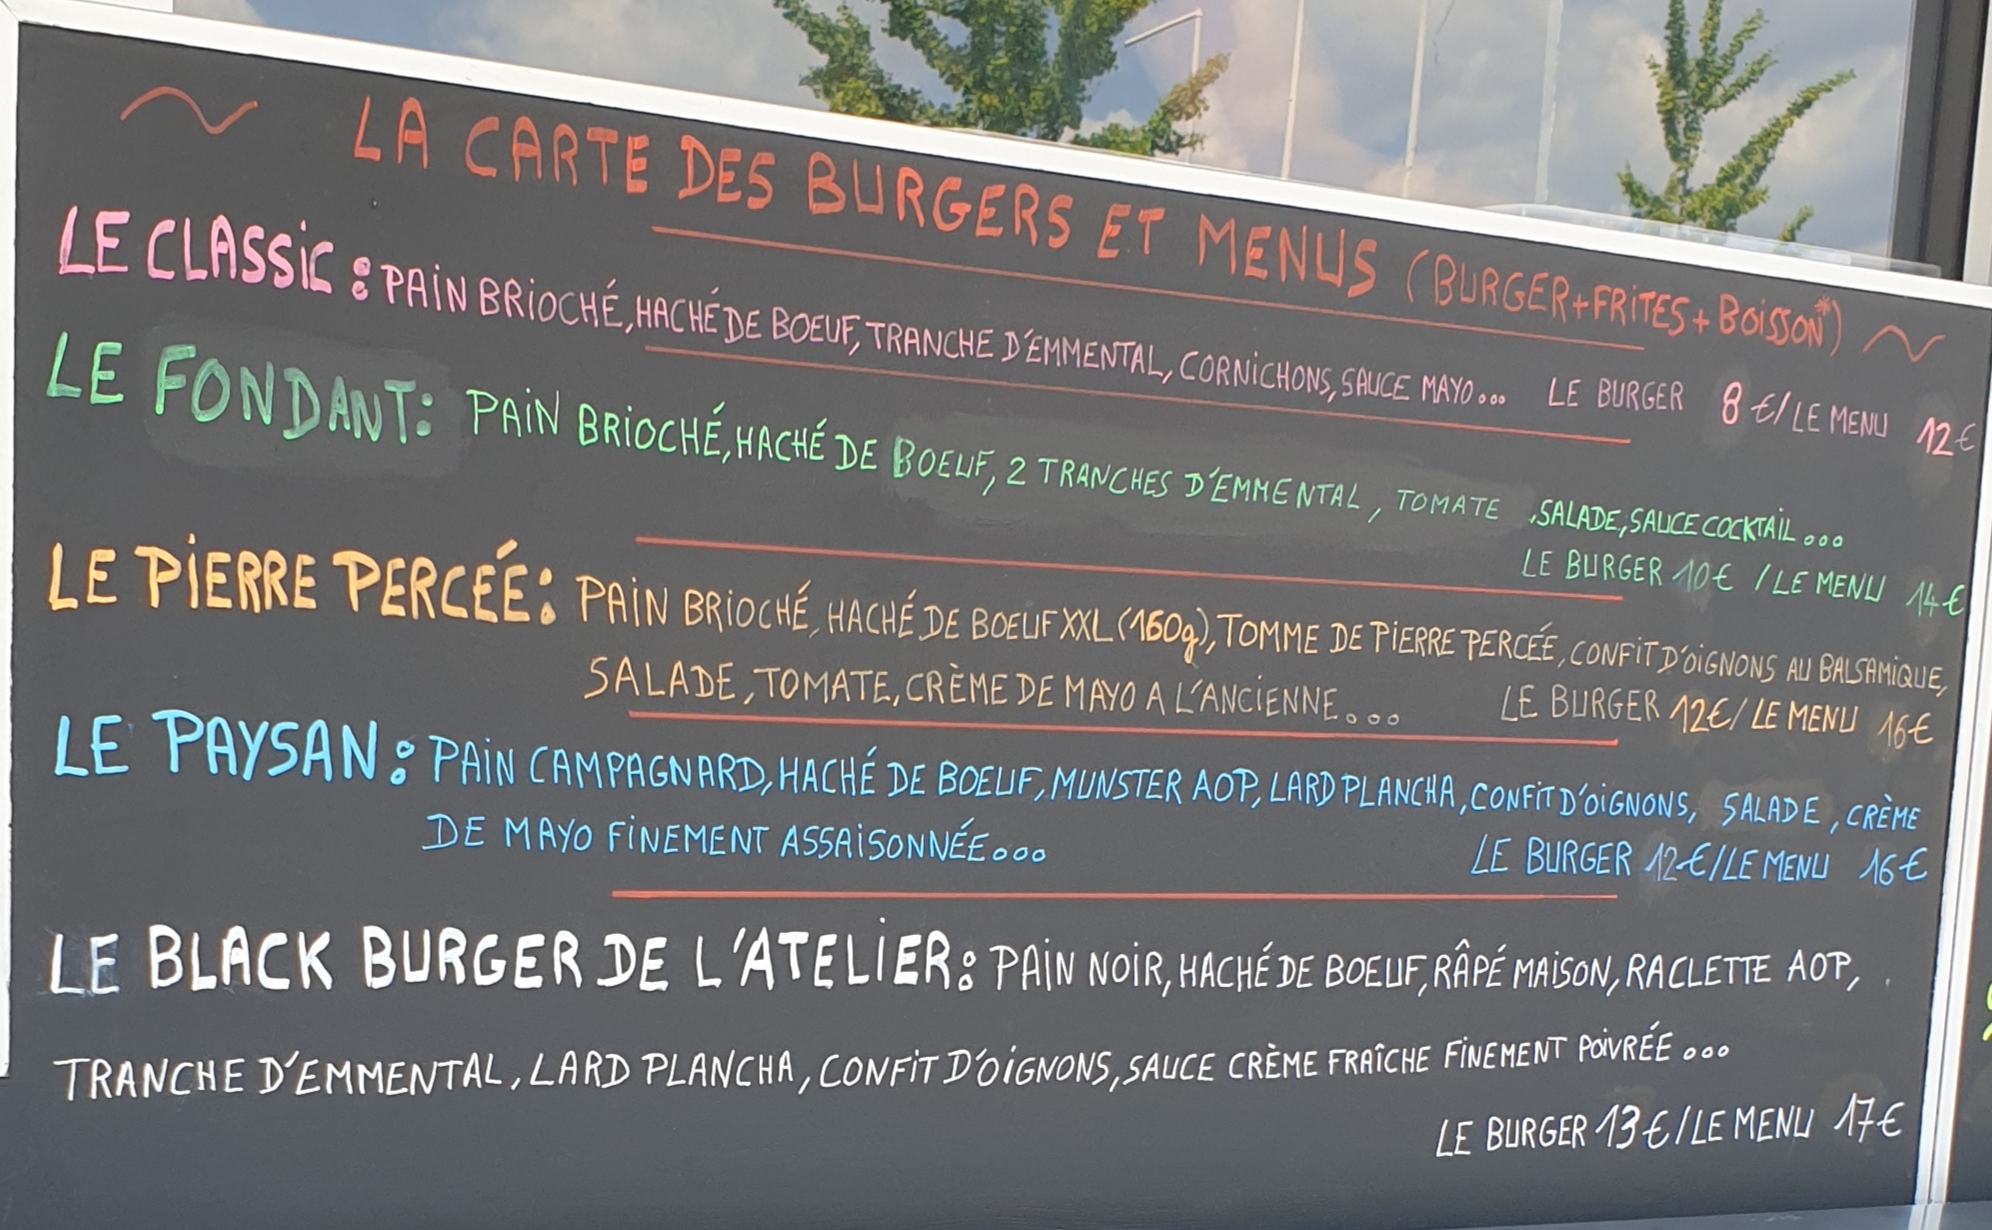 ~ LA CARTE DES BURGERS ET MENUS (BURGER+FRITES+BOISSON*) ~
LE CLASSIC : PAIN BRIOCHÉ, HACHÉ DE BOEUF, TRANCHE D'EMMENTAL, CORNICHONS, SAUCE MAYO... LE BURGER 8€/LE MENU 12€
LE FONDANT: PAIN BRIOCHÉ, HACHÉ DE BOEUF, 2 TRANCHES D'EMMENTAL, TOMATE ,SALADE, SAUCE COCKTAIL...
LE BURGER 10€ /LE MENU 14€
LE PIERRE PERCÉE: PAIN BRIOCHÉ, HACHÉ DE BOEUF XXL (160g), TOMME DE PIERRE PERCÉE, CONFIT D'OIGNONS AU BALSAMIQUE,
SALADE, TOMATE, CRÈME DE MAYO A L'ANCIENNE... LE BURGER 12€/LE MENU 16€
LE PAYSAN : PAIN CAMPAGNARD, HACHÉ DE BOEUF, MUNSTER AOP, LARD PLANCHA, CONFIT D'OIGNONS, SALADE, CRÈME
DE MAYO FINEMENT ASSAISONNÉE... LE BURGER 12€/LE MENU 16€
LE BLACK BURGER DE L'ATELIER: PAIN NOIR, HACHÉ DE BOEUF, RÂPÉ MAISON, RACLETTE AOP,
TRANCHE D'EMMENTAL, LARD PLANCHA, CONFIT D'OIGNONS, SAUCE CRÈME FRAÎCHE FINEMENT POIVRÉE...
LE BURGER 13€/LE MENU 17€